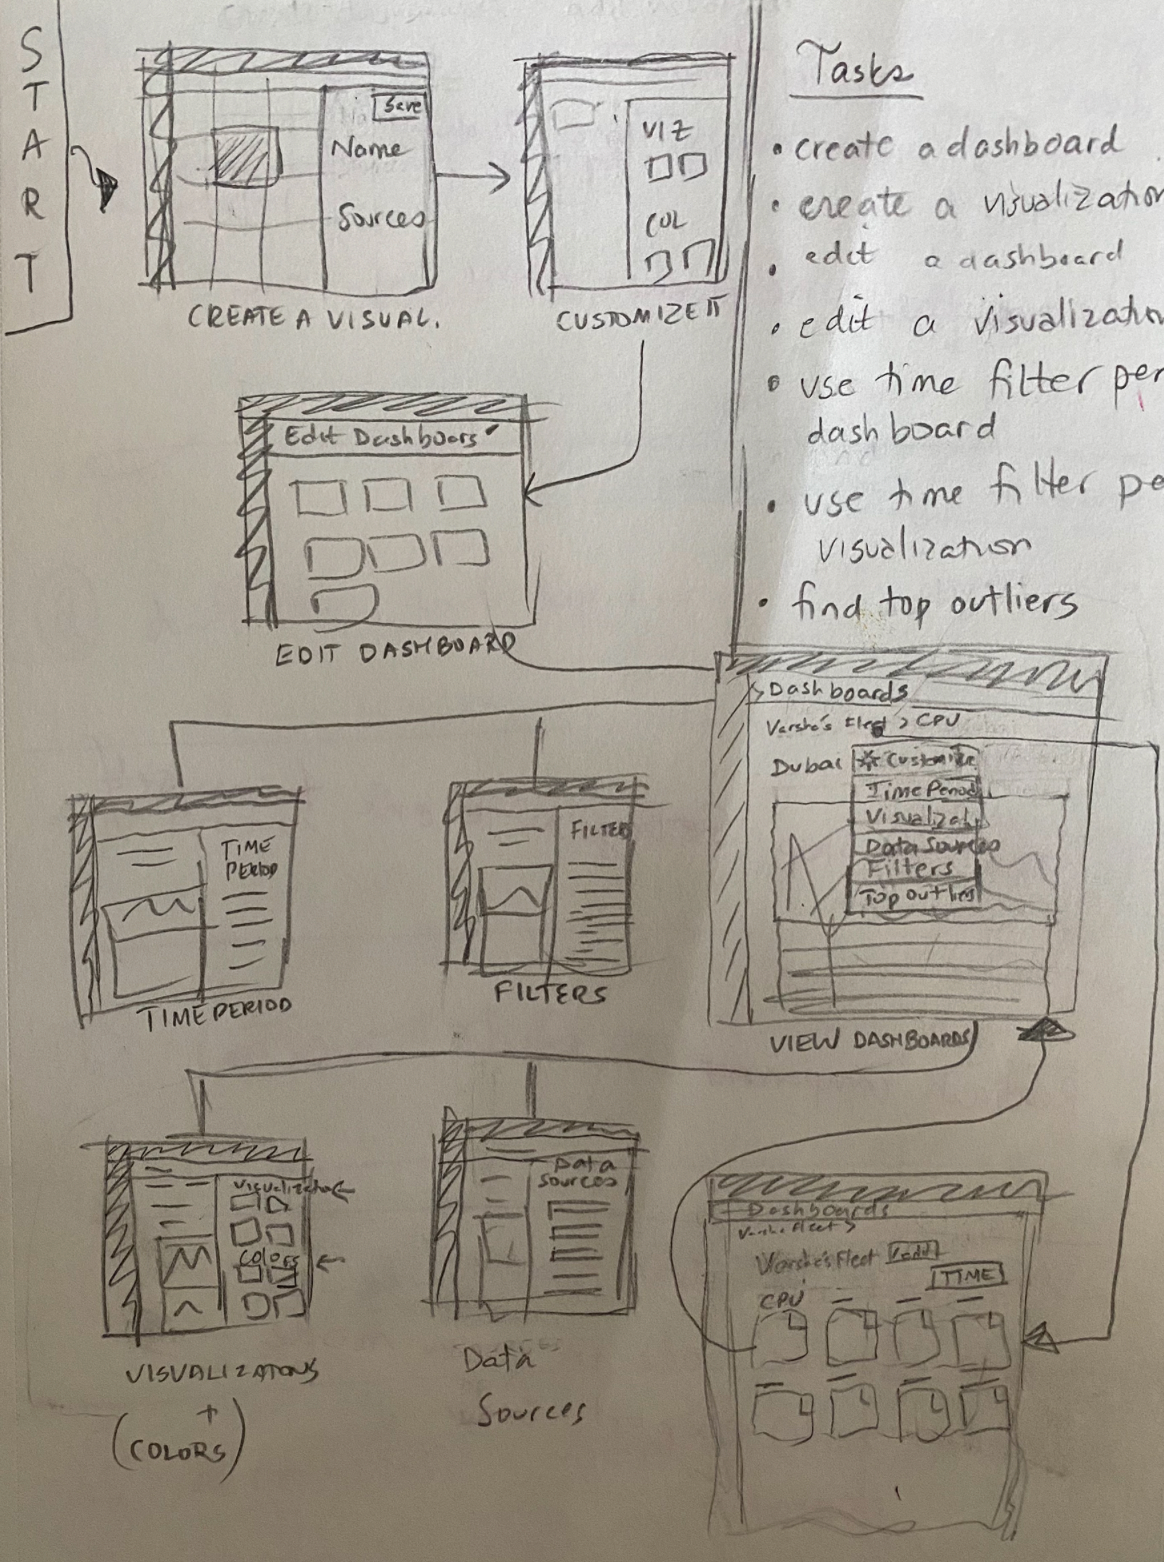 START
Save
Name
Sources
CREATE A VISUAL.
VIZ
COL
CUSTOMIZE IT
Tasks
• create a dashboard
• create a visualization
• edit a dashboard
• edit a visualization
• use time filter per
dashboard
• use time filter pe
visualization
• find top outliers
Edit Dashboars
EDIT DASHBOARD
> Dashboards
Varsha's Fleet > CPU
Dubai
Customize
Time Period
Visualizat
Data Sources
Filters
Top outlies
VIEW DASHBOARDS
TIME
PERIOD
TIME PERIOD
FILTERS
FILTERS
Visualizato
COLORS
VISUALIZATONS
+
(COLORS)
Data
Sources
Data
Sources
Dashboards
Varsha Fleet >
Varsha's Fleet edit
TIME
CPU